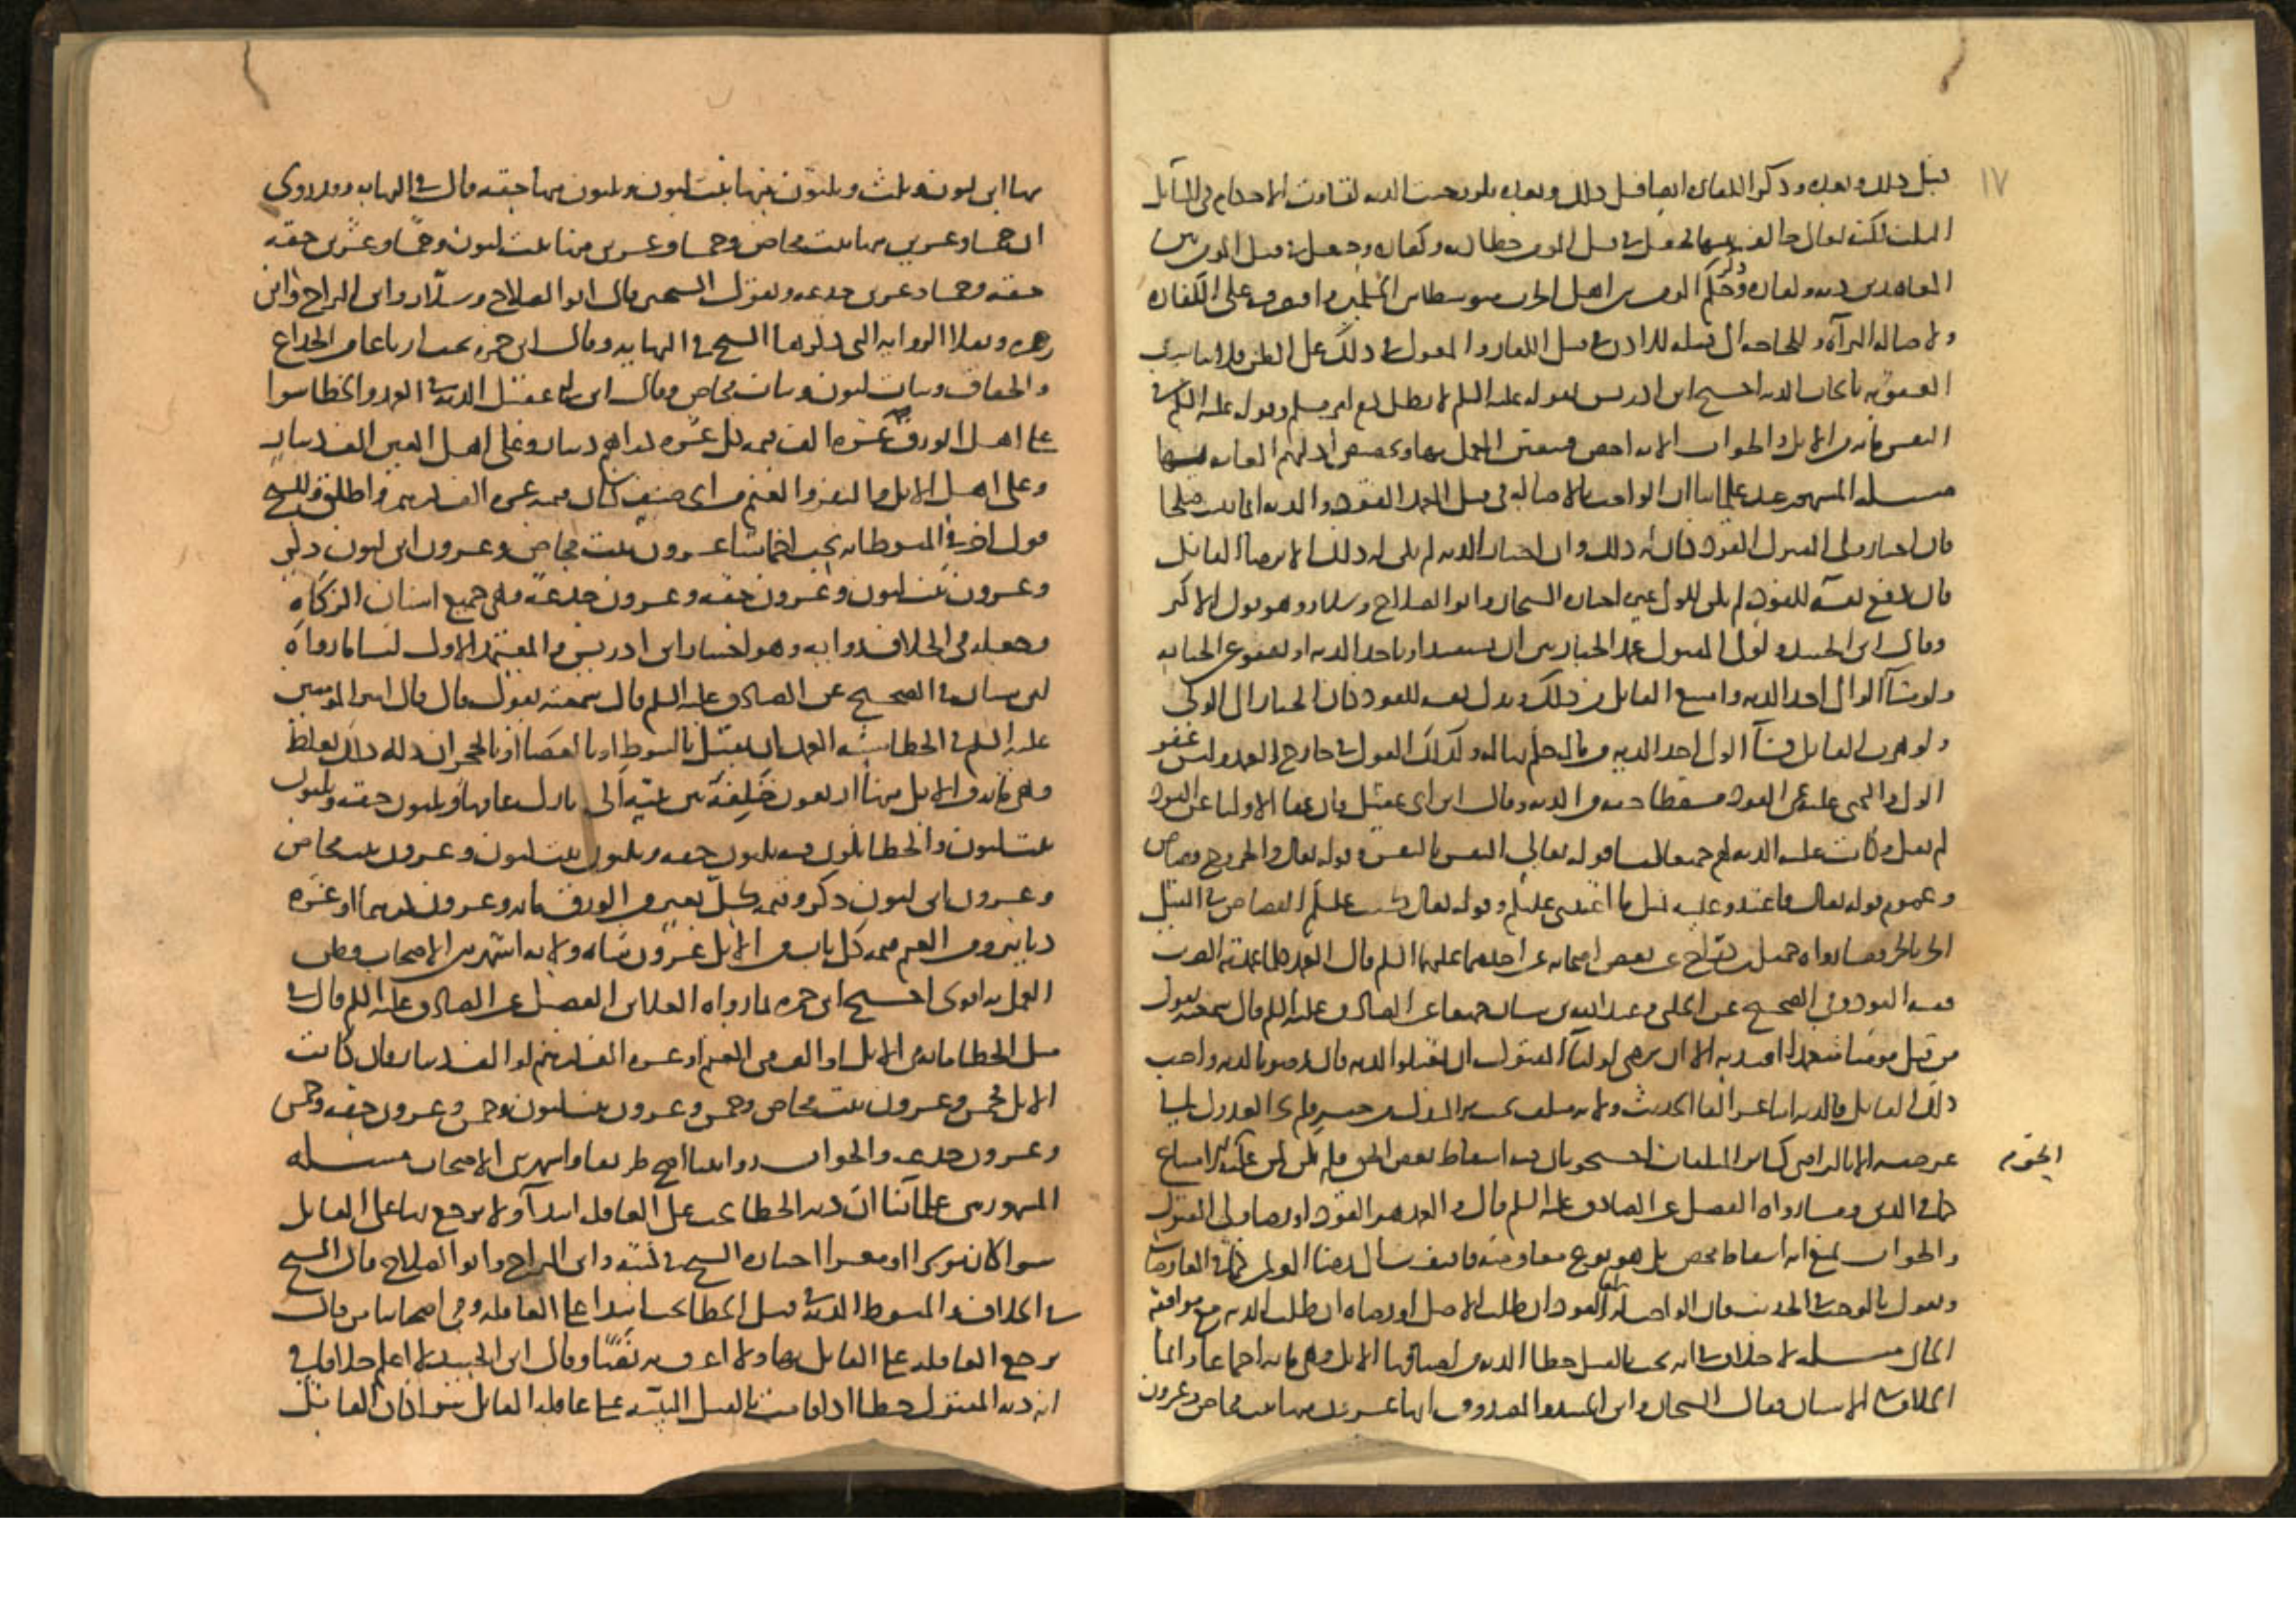 ١٧
قبل ذلك وبعده وذكر الكفارة ايضا قبل ذلك وبعده فلو وجبت الدية لتفاوت الاحكام في المسائل
الثلث لكنه تعالى خالف بينها فجعل في قتل المؤمن خطا الدية وكفارة وجعل في قتل المؤمن من
المعاهدين دية وكفارة وحكم المؤمن من اهل الحرب متوسطا بين المسلمين واقتصر على الكفارة
ولاصالة البرآة وللحاجة الى قتله للاذن في قتل الكفار والمعول في ذلك على الظن
بايجاب الدية احتج ابن ادريس بقوله عليه السلم لا يطل دم امرء مسلم وقوله عليه السلم في
النفس مائة من الابل والجواب الاية اخص فيتعين العمل بها
مسلة المشهور عند علمائنا ان الواجب بالاصالة في قتل العمد القود والدية انما تثبت صلحا
فان اختار ولي المقتول القود كان له ذلك وان اختار الدية لم يكن له ذلك الا برضا القاتل
فان دفع نفسه للقود لم يكن للولي غيره اختاره الشيخان وابو الصلاح وسلار وهو قول الاكثر
وقال ابن الجنيد ولولي المقتول عمدا الخيار بين ان يستقيد او ياخذ الدية او يعفو عن الجناية
ولو شآ الولي اخذ الدية وامتنع القاتل من ذلك وبذل نفسه للقود كان الخيار الى الولي
ولو هرب القاتل فشآ الولي اخذ الدية من ماله حكم بها له وكذلك القول في جراح العمد وليس عفو
الولي والمجني عليه عن القود مسقطا حقه من الدية وقال ابن ابي عقيل فان عفا الاوليا عن القود
لم يقتل وكانت عليه الدية لهم جميعا لنا قوله تعالى النفس بالنفس وقوله تعالى والجروح قصاص
وعموم قوله تعالى فاعتدوا عليه بمثل ما اعتدى عليكم وقوله تعالى كتب عليكم القصاص في القتلى
الحر بالحر وما رواه جميل بن دراج عن بعض اصحابه عن احدهما عليهما السلم قال العمد كلما عمد به الضرب
ففيه القود وفي الصحيح عن الحلبي وعبد الله بن سنان جميعا عن الصادق عليه السلم قال سمعته يقول
من قتل مؤمنا متعمدا اقيد به الا ان يرضى اوليآ المقتول ان يقبلوا الدية فان رضوا بالدية واحب
ذلك القاتل فالدية اثنا عشر الفا الحديث ولانه متلف
الا بالتراضي كسائر المتلفات احتج بان فيه اسقاط بعض الحق فلم يكن لمن عليه الحق امتناع
كما في الدين وما رواه الفضيل عن الصادق عليه السلم قال والعمد هو القود او رضا ولي المقتول
والجواب نمنع انه اسقاط محض بل هو نوع معاوضة فاليفت
ونقول بالموجب في الحديث فان الواجب انما القود ان طلب الاصل او رضاه ان طلب الدية مع موافقة
الجاني مسلة لا خلاف في انه يجب بالقتل خطا الدية من اصنافها الابل وهي مائة اجماعا وانما
الخلاف في الاسنان فقال الشيخان وابن الجنيد والصدوق انها عشرون منها بنت مخاض وعشرون
منها ابن لبون وثلث وثلثون منها بنت لبون وثلثون منها حقة قال في النهاية وقد روى
ان خمسا وعشرين منها بنت مخاض وخمسا وعشرين منها بنت لبون وخمسا وعشرين حقة
وخمسا وعشرين جذعة وبقول الشيخين قال ابو الصلاح وسلار وابن البراج وابن
زهرة وبهذا الرواية التي ذكرها الشيخ في النهاية وقال ابن حمزة تجب ارباعا من الجذاع
والحقاق وبنات لبون وبنات مخاض وقال ابن ابي عقيل الدية في العمد والخطا سوا
على اهل الورق عشرة الف قيمة كل عشرة دراهم دينار وعلى اهل العين الف دينار
وعلى اهل الابل والبقر والغنم من اي صنف كان قيمته عشرة الف درهم واطلق وللشيخ
قول اخر في المبسوط انه يجب اخماسا عشرون بنت مخاض وعشرون ابن لبون ذكر
وعشرون بنت لبون وعشرون حقة وعشرون جذعة وهي جميع اسنان الزكاة
وجعله في الخلاف رواية وهو اختيار ابن ادريس والمعتمد الاول لنا ما رواه
ابن سنان في الصحيح عن الصادق عليه السلم قال سمعته يقول قال قال امير المؤمنين
عليه السلم في الخطا شبه العمد ان يقتل بالسوط او بالعصا او بالحجر ان دية ذلك تغلظ
وهي مائة من الابل منها اربعون خلفة بين ثنية الى بازل عامها وثلثون حقة وثلثون
بنت لبون والخطا يكون فيه ثلثون حقة وثلثون بنت لبون وعشرون بنت مخاض
وعشرون ابن لبون ذكر وقيمة كل بعير من الورق مائة وعشرون درهما او عشرة
دنانير ومن الغنم قيمة كل ناب من الابل عشرون شاة ولانه اشهر بين الاصحاب وظن
العمل به اقوى احتج ابن حمزة بما رواه العلا بن الفضيل عن الصادق عليه السلم قال في
قتل الخطا مائة من الابل او الف من الغنم او عشرة الف درهم او الف دينار فان كانت
الابل فخمس وعشرون بنت مخاض وخمس وعشرون بنت لبون وخمس وعشرون حقة وخمس
وعشرون جذعة والجواب روايتنا اصح طريقا واشهر بين الاصحاب مسلة
المشهور بين علمآئنا ان دية الخطا تجب على العاقلة ابتدآ ولا يرجع بها على القاتل
سوا كان موسرا او معسرا اختاره الشيخ في كتبه وابن البراج وابو الصلاح قال الشيخ
في الخلاف والمبسوط الدية في قتل الخطا تجب ابتدا على العاقلة وفي اصحابنا من قال
يرجع العاقلة على القاتل بها ولا اعرف به نصا وقال ابن الجنيد لا اعلم خلافا في
ان دية المقتول خطا اذا قامت بالقتل البينة على عاقلة القاتل سوا كان القاتل